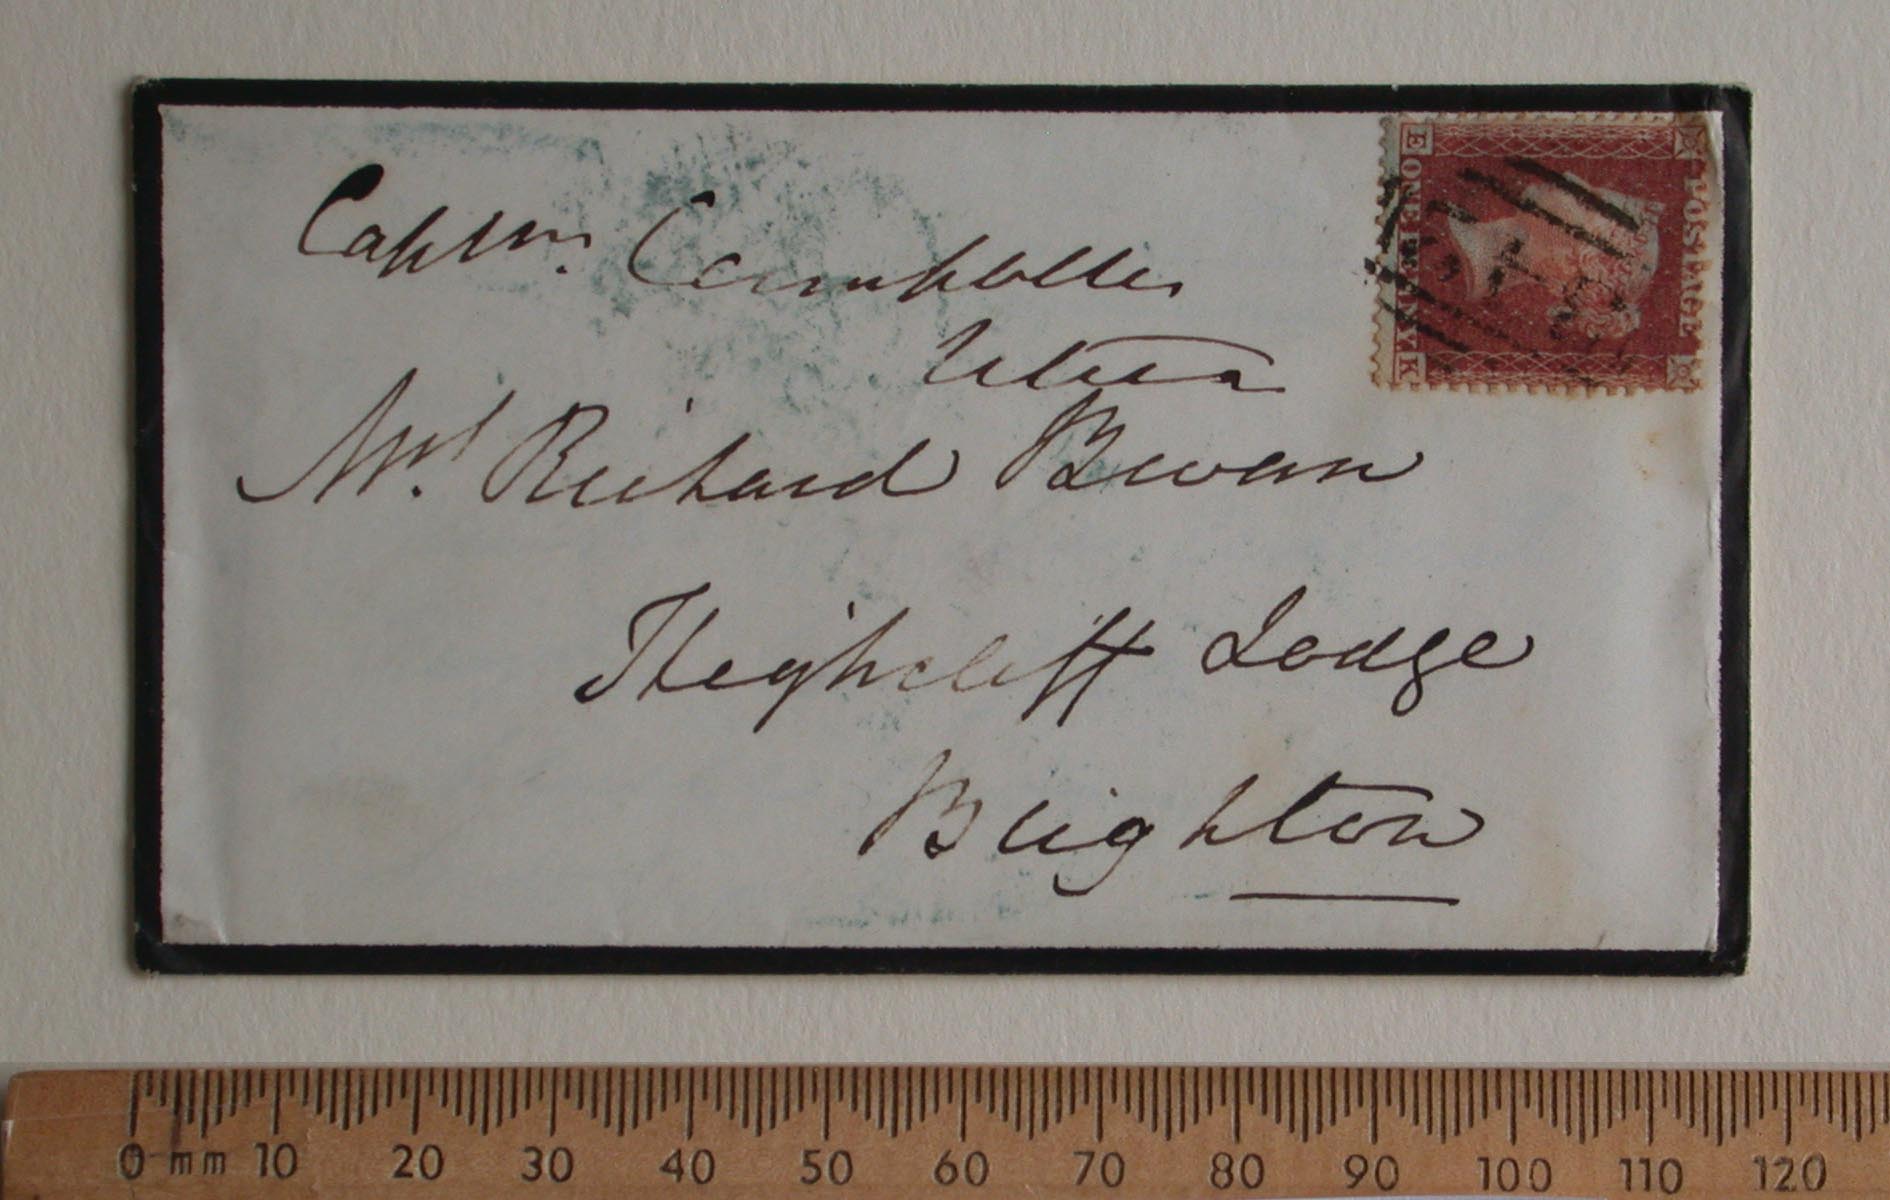 Captn.
Mrs. Richard Bevan
Highcliff Lodge
Brighton
POSTAGE
ONE PENNY
E K
0 mm 10 20 30 40 50 60 70 80 90 100 110 120